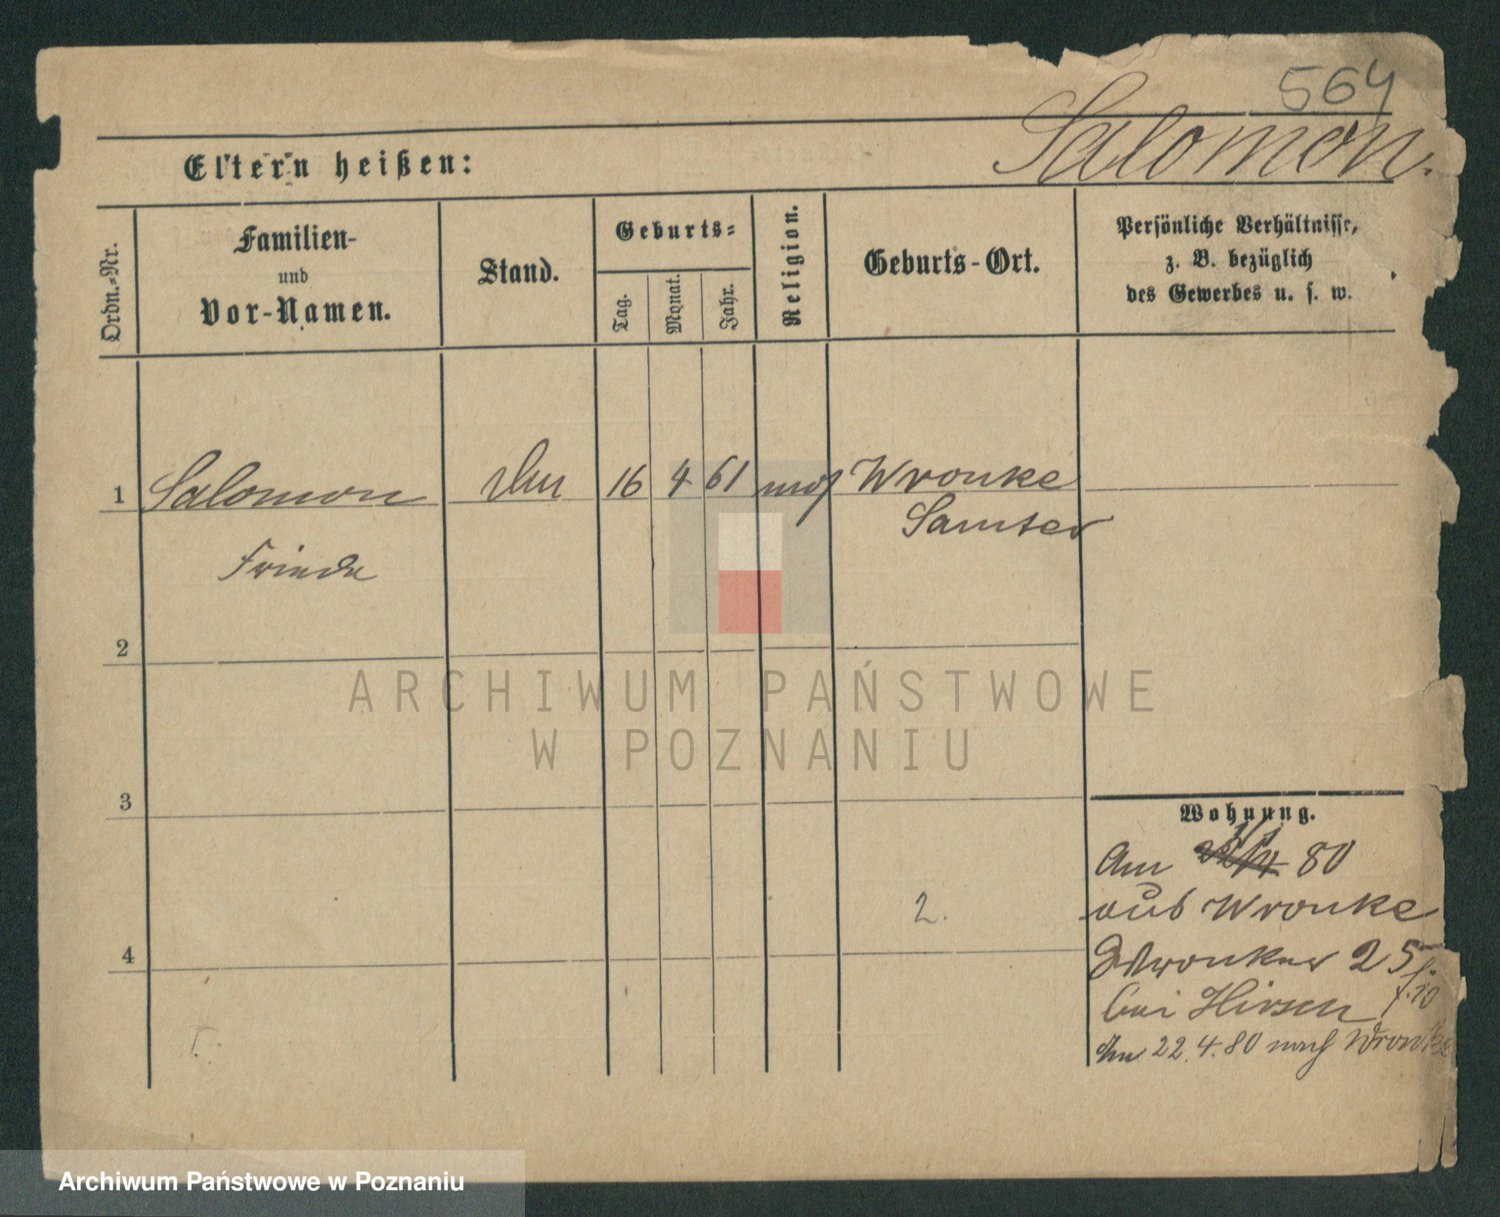 564
Salomon.
Eltern heißen:
Ordn.-Nr.
Familien-
und
Vor-Namen.
Stand.
Geburts-
Tag.
Monat.
Jahr.
Religion.
Geburts-Ort.
Persönliche Verhältnisse,
z. B. bezüglich
des Gewerbes u. s. w.
1 Salomon 16 4 61 mos Wronke
Samter
Friede
2
3
4
2.
Wohnung.
Am 80
aus Wronke
Wronker 25
bei Hirsch
Am 22.4.80 nach Wronke
ARCHIWUM PAŃSTWOWE
W POZNANIU
Archiwum Państwowe w Poznaniu